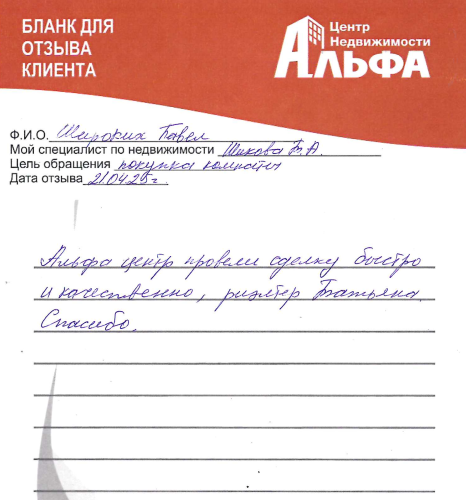 БЛАНК ДЛЯ
ОТЗЫВА
КЛИЕНТА
Центр
Недвижимости
АЛЬФА
Ф.И.О. Широких Павел
Мой специалист по недвижимости Шикова Т.А.
Цель обращения покупка комнаты
Дата отзыва 21.04.25г.
Альфа центр провели сделку быстро
и качественно, риэлтер Татьяна.
Спасибо.